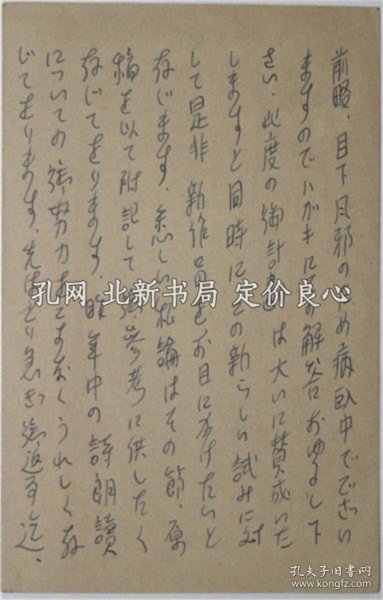 前略、目下風邪のため病臥中でござい
ますのでハガキにての御解答おゆるし下
さい、此度の御計画は大いに賛成いた
しますと同時にその新らしい試みに対
して是非新作品をお目にかけたいと
存じます、私論はその節、原
稿を以て附記して御参考に供したく
存じてをります、昨年中の詩朗讀
についての御努力はすくなくうれしく存
じてをります、先はとり急ぎ御返事迄、
孔网 北新书局 定价良心
孔夫子旧书网